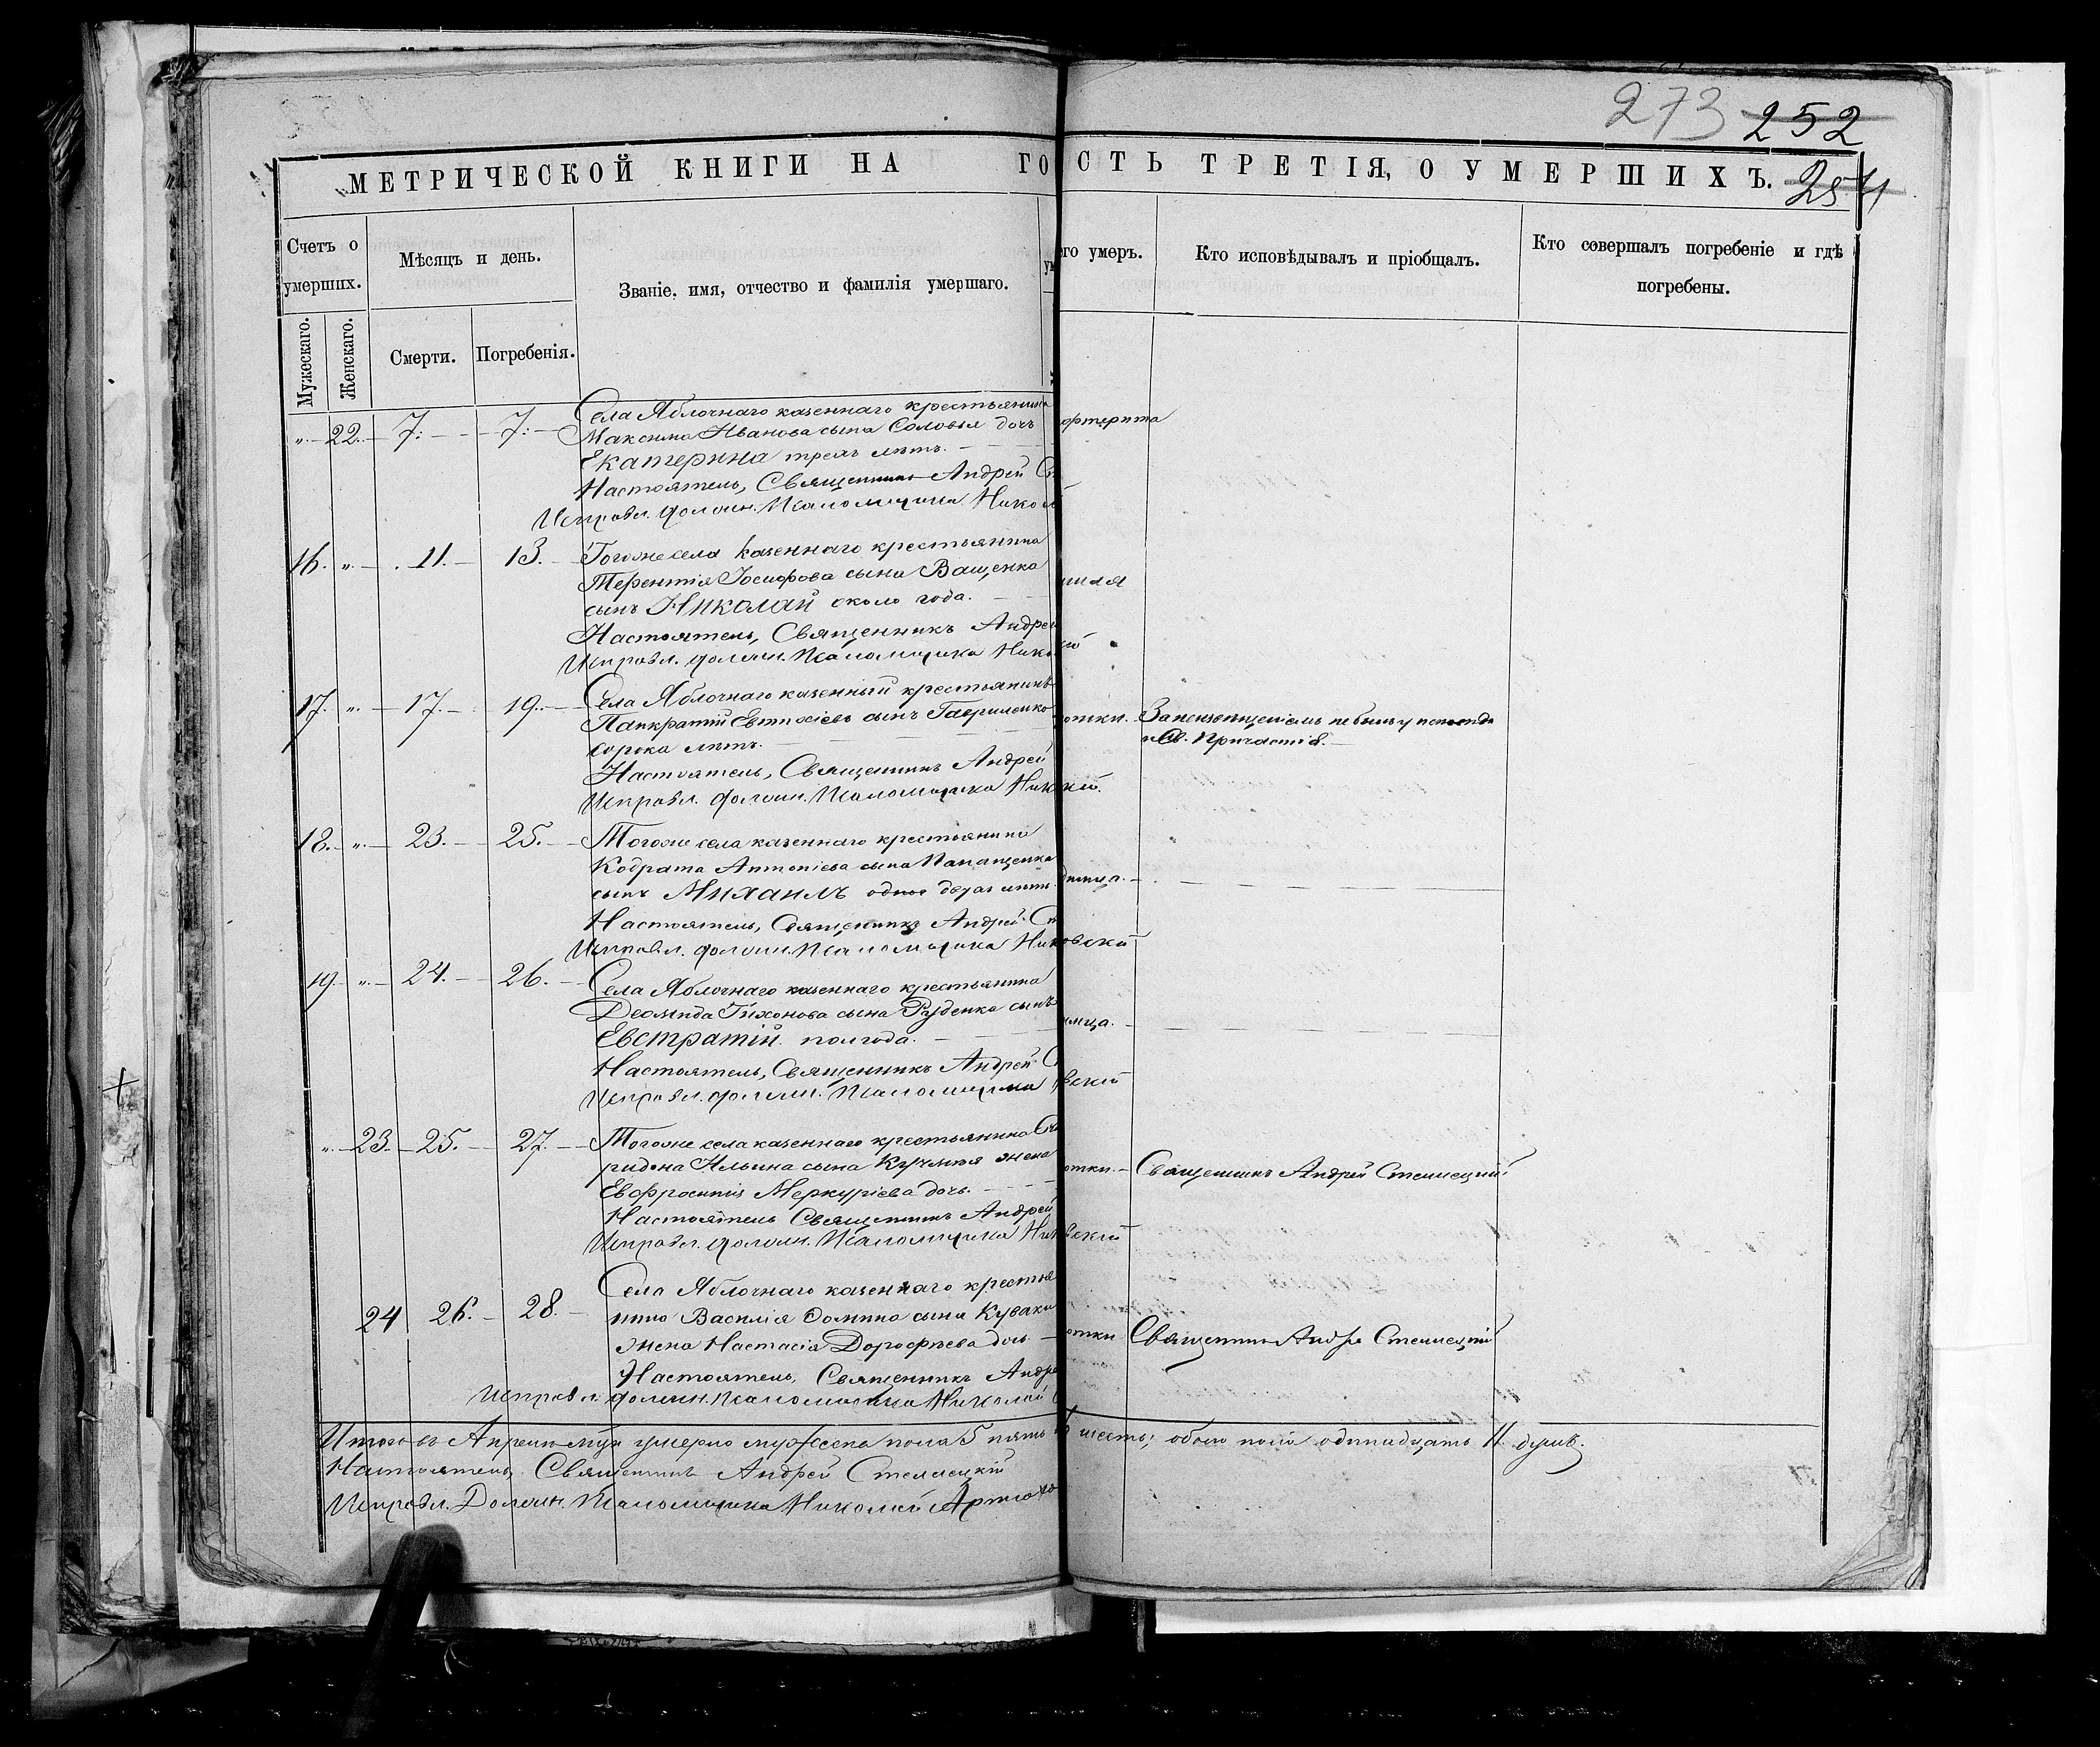 273 252
МЕТРИЧЕСКОЙ КНИГИ НА ГО СТЬ ТРЕТІЯ, О УМЕРШИХЪ. 254
Счетъ о умершихъ.
Мѣсяцъ и день.
Званіе, имя, отчество и фамилія умершаго.
его умеръ.
Кто исповѣдывалъ и пріобщалъ.
Кто совершалъ погребеніе и гдѣ погребены.
Мужескаго.
Женскаго.
Смерти.
Погребенія.
„ 22. 7. 7. Села Яблочнаго казеннаго крестьянина
Максима Иванова сына Соловья дочь
Екатерина трехъ лѣтъ.
Настоятель, Священникъ Андрей
Исправл. должн. Псаломщика Никол
16. „ 11. 13. Тогоже села казеннаго крестьянина
Терентія Іосифова сына Ващенка
сынъ Николай около года.
Настоятель, Священникъ Андрей
Исправл. должн. Псаломщика Нико
17. „ 17. 19. Села Яблочнаго казенный крестьянинъ
Панкратій Евтихіевъ сынъ Гавриленко отки.
сорока лѣтъ.
и Св. Причастія.
Настоятель, Священникъ Андрей
Исправл. должн. Псаломщика Ник кій.
18. „ 23. 25. Тогоже села казеннаго крестьянина
Кодрата Антоніева сына
сынъ Михаилъ двухъ лѣтъ.
Настоятель, Священникъ Андрей Ст
Исправл. должн. Псаломщика Ник овскій
19. „ 24. 26. Села Яблочнаго казеннаго крестьянина
Деомида Тихонова сына Руденка сынъ
Евстратій полгода.
Настоятель, Священникъ Андрей С
Исправл. должн. Псаломщика вскій
„ 23. 25. 27. Тогоже села казеннаго крестьянина Спи
ридона Ильина сына жена отки. Священникъ Андрей Стеллецкій
Евфросинія Меркуріева дочь.
Настоятель Священникъ Андрей
Исправл. должн. Псаломщика Ник вскій
24 26. 28. Села Яблочнаго казеннаго крестья
нина Василія Фомина сына
жена Настасія Дорофѣева дочь отки Священникъ Андр Стеллецкій
Настоятель, Священникъ Андре
Исправл. должн. Псаломщика Николай
Итого въ Апрелѣ м-цѣ умерло мужеска пола 5 пять 6 шесть; обоего пола одиннадцать 11 душъ.
Настоятель, Священникъ Андрей Стеллецкій
Исправл. Должн. Псаломщика Николай Артюхо